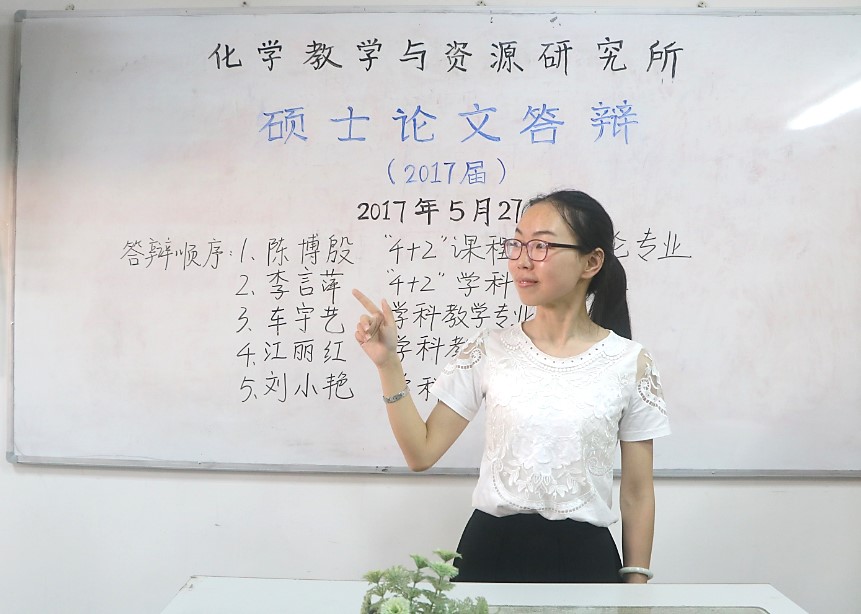 化学教学与资源研究所
硕士论文答辩
（2017届）
2017年5月27
答辩顺序：1、陈博殷 “4+2”课程 论专业
2、李言萍 “4+2”学科
3、车宇艺 学科教学专业
4、江丽红 学科教
5、刘小艳 学科